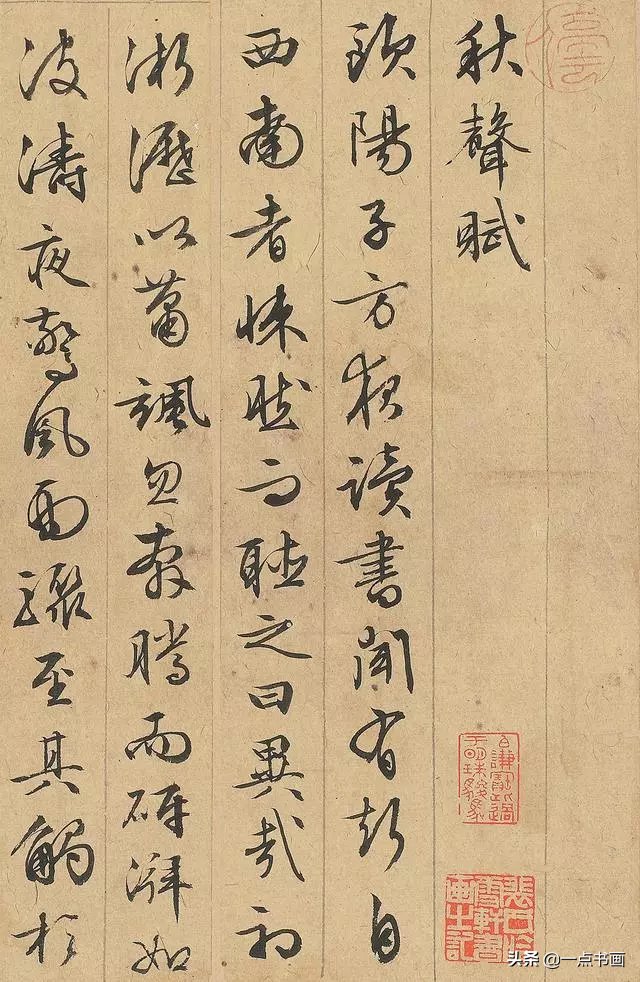 秋聲賦
歐陽子方夜讀書聞有聲自
西南者悚然而聽之曰異哉初
淅瀝以蕭颯忽奔騰而砰湃如
波濤夜驚風雨驟至其觸於
头条 @一点书画